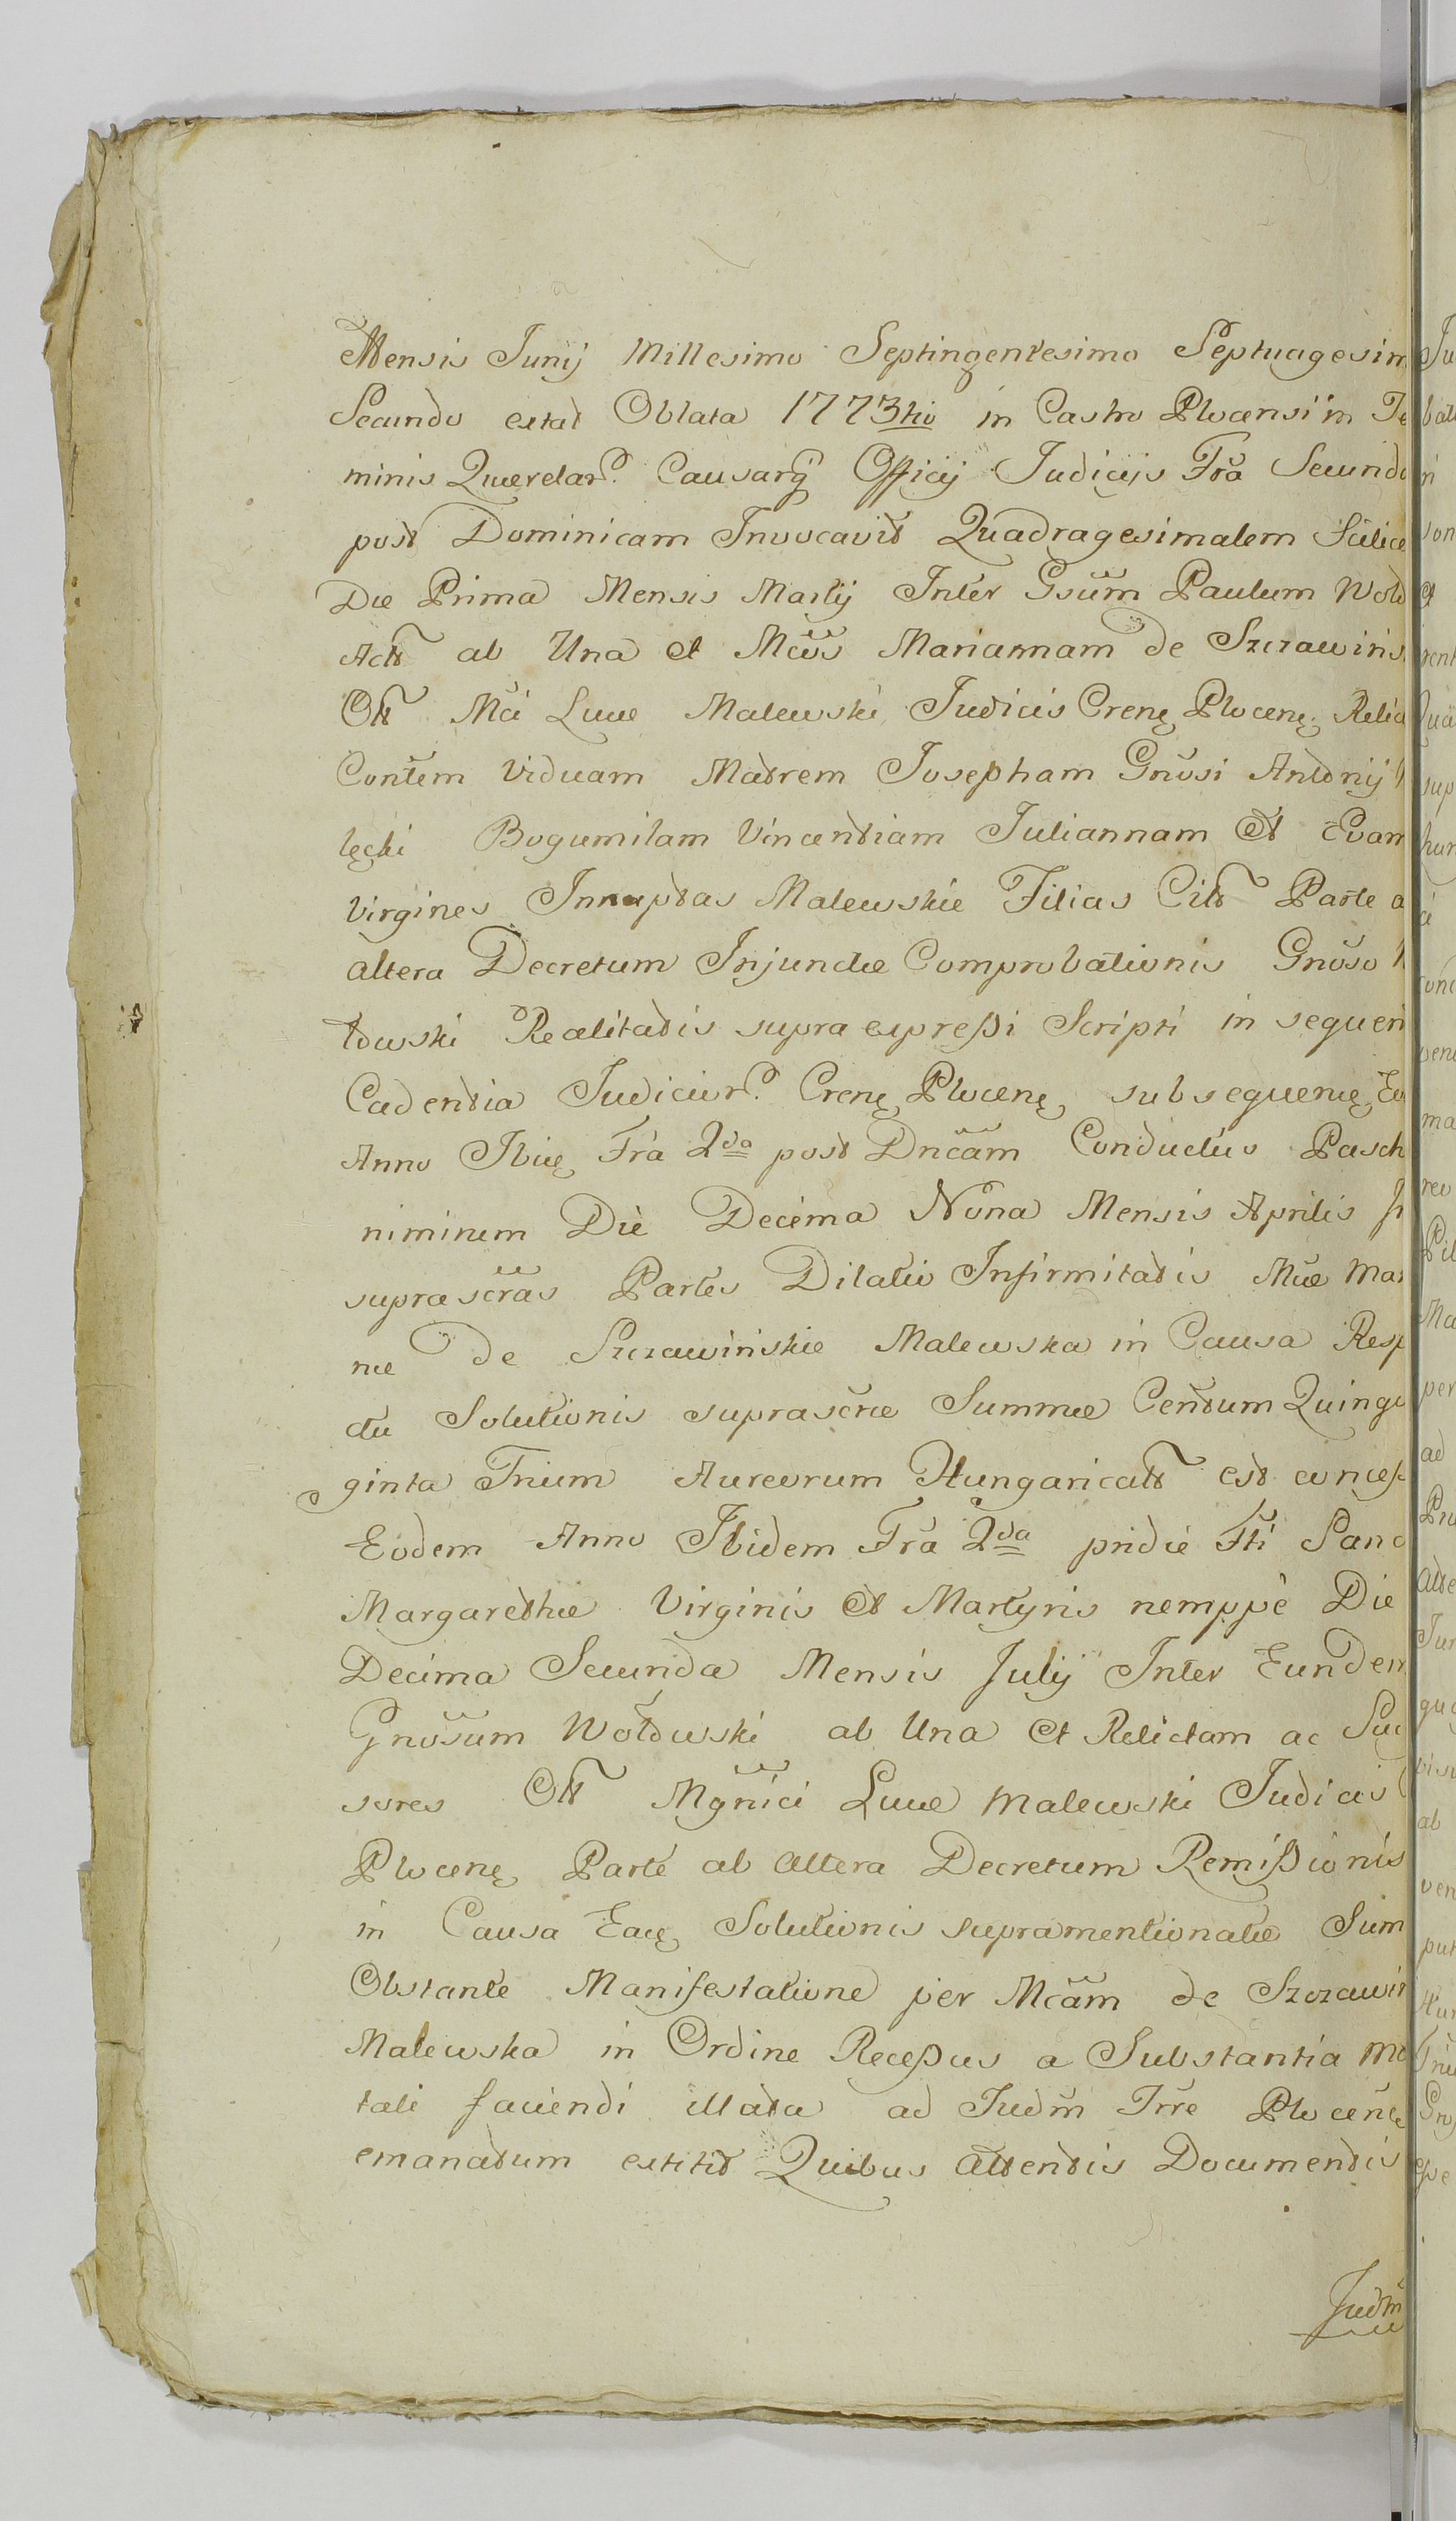 Mensis Junij Millesimo Septingentesimo Septuagesim
Secundo extat Oblata 1773tio in Castro Plocensi in Te
minis Querelar. Causarq Officij Judicijs Fra Secunda
post Dominicam Invocavit Quadragesimalem Scilice
Die Prima Mensis Martij Inter Gsum Paulum Woło
Act ab Una et Mcas Mariannam de Szczawins
Olt Mci Lucæ Malewski Judicis Crenę Plocenę Relic
Contem Viduam Matrem Josepham Gnosi Antonij
lęcki Bogumilam Vincentiam Juliannam Et Evam
Virgines Innuptas Malewskie Filias Cit Parte a
altera Decretum Injunctæ Comprobationis Gnoso
łowski Realitatis supra expreßi Scripti in sequen
Cadentia Judicior. Crenę Plocenę subsequenę Eo
Anno Ibię Fra 2da post Dncam Conductus Pasch
niminem Die Decima Nona Mensis Aprilis
suprascras Partes Dilatio Infirmitatis Mcæ Mar
næ De Szczawinskie Malewska in Causa Resp
du Solutionis suprascræ Summæ Centum Quinqu
ginta Trium Aureorum Hungaricalt est conceß
Eodem Anno Ibidem Fra 2da pridie Fti Sanc
Margarethæ Virginis Et Martyris nemppè Die
Decima Secunda Mensis Julij Inter Eundem
Gnosum Wołowski ab Una Et Relictam ac Suc
sores Olt Mgnici Lucæ Malewski Judicis
Plocenę Parte ab altera Decretum Remißionis
in Causa Eaę Solutionis supramentionatæ Sum
Obstante Manifestatione per Mcam de Szczawin
Malewska in Ordine Receßus a Substantia Ma
tali faciendi illata ad Judm Trre Plocenę
emanatum extitit Quibus Attentis Documentis
Judm